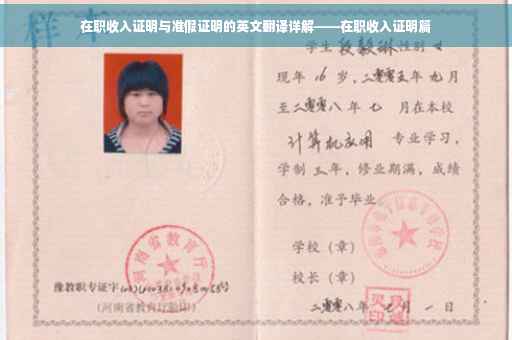 在职收入证明与准假证明的英文翻译详解——在职收入证明篇
样本
学生段毅琳性别女
现年16岁，二零零五年九月
至二零零八年七月在本校
计算机应用专业学习，
学制三年，修业期满，成绩
合格，准予毕业。
学校（章）
校长（章）
二零零八年七月一日
河南省教育厅
豫教职专证字
（河南省教育厅验印）